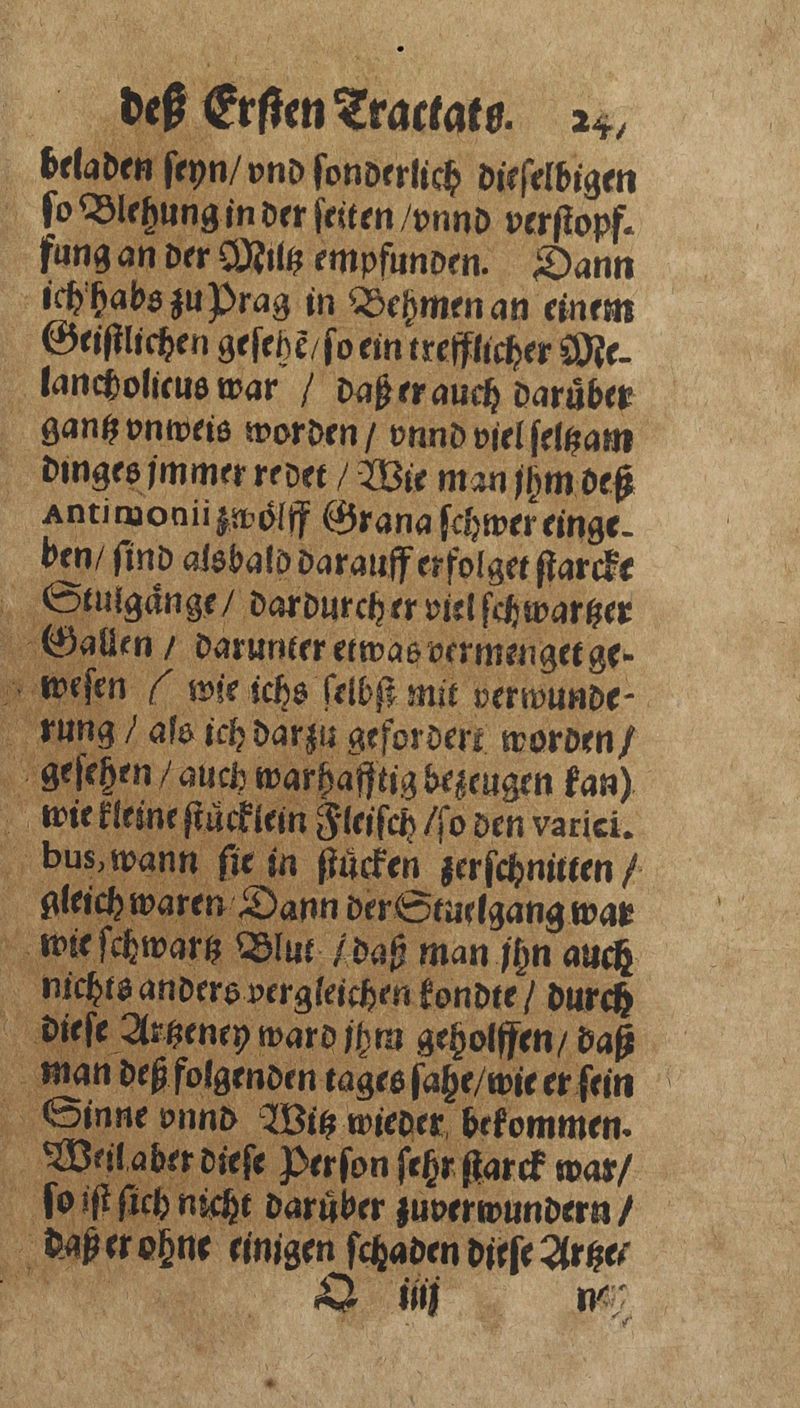 deß Erſten Tractats. 24,
beladen ſeyn/ vnd ſonderlich dieſelbigen
ſo Blehung in der ſeiten /vnnd verſtopf-
fung an der Miltz empfunden. Dann
ich habs zu Prag in Behmen an einem
Geiſtlichen geſehẽ/ ſo ein trefflicher Me-
lancholicus war / daß er auch darüber
gantz vnweis worden / vnnd viel ſeltzam
dinges jmmer redet / Wie man jhm deß
Antimonii zwölff Grana ſchwer einge-
ben/ ſind alsbald darauff erfolget ſtarcke
Stulgänge / dardurch er viel ſchwartzer
Gallen / darunter etwas vermenget ge-
weſen ( wie ichs ſelbſt mit verwunde-
rung / als ich darzu gefordert worden /
geſehen / auch warhafftig bezeugen kan)
wie kleine ſtücklein Fleiſch /ſo den varici-
bus, wann ſie in ſtücken zerſchnitten /
gleich waren Dann der Stuelgang war
wie ſchwartz Blut / daß man jhn auch
nichts anders vergleichen kondte / durch
dieſe Artzeney ward jhm geholffen/ daß
man deß folgenden tages ſahe/wie er ſein
Sinne vnnd Witz wieder bekommen.
Weil aber dieſe Perſon ſehr ſtarck war/
ſo iſt ſich nicht darüber zuverwundern /
daß er ohne einigen ſchaden dieſe Artze-
Q iiij